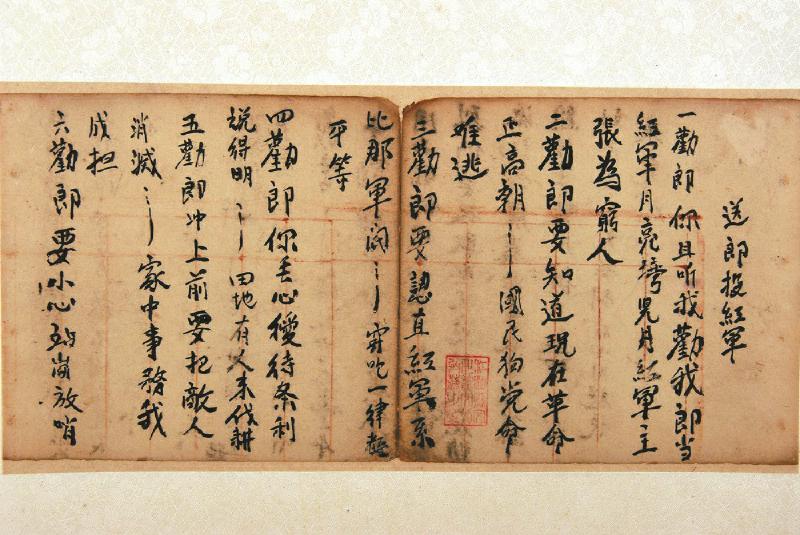 送郎投紅軍
一勸郎你且听我勸我郎当
紅軍月亮湾児月紅軍主
張為窮人
二勸郎要知道現在革命
正高朝〻〻國民狗党命
难逃
三勸郎要認真紅軍系
比那軍阀〻〻穿吃一律
平等
四勸郎你丢心優待条利
说得明〻〻田地有人来伐耕
五勸郎冲上前要把敵人
消滅〻〻家中事務我
成担
六勸郎要小心站崗放哨